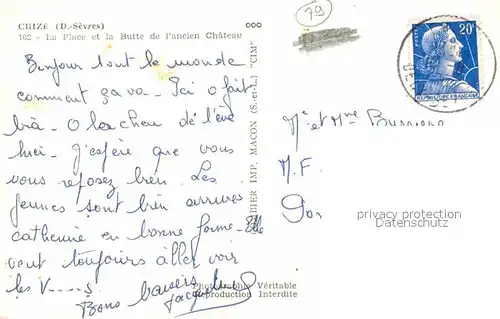 CHIZE (D.-Sèvres)
102 - La Place et la Butte de l'ancien Château
79
POSTE 20F
REPUBLIQUE FRANÇAISE
Bonjour tout le monde
comment ça va. Ici o fait
bià. O la cheu de l'ève
hiei. J'espère que vous
vous reposez bien. Les
jeunes sont bien arrivés
catherine en bonne forme. Elle
veut toujours aller voir
les V----s
Bons baisers
Jacqueline
COMBIER IMP. MACON (S.-et-L.) "CIM"
Photographie Véritable
Reproduction Interdite
Mr et Mme
M. F.
privacy protection
Datenschutz